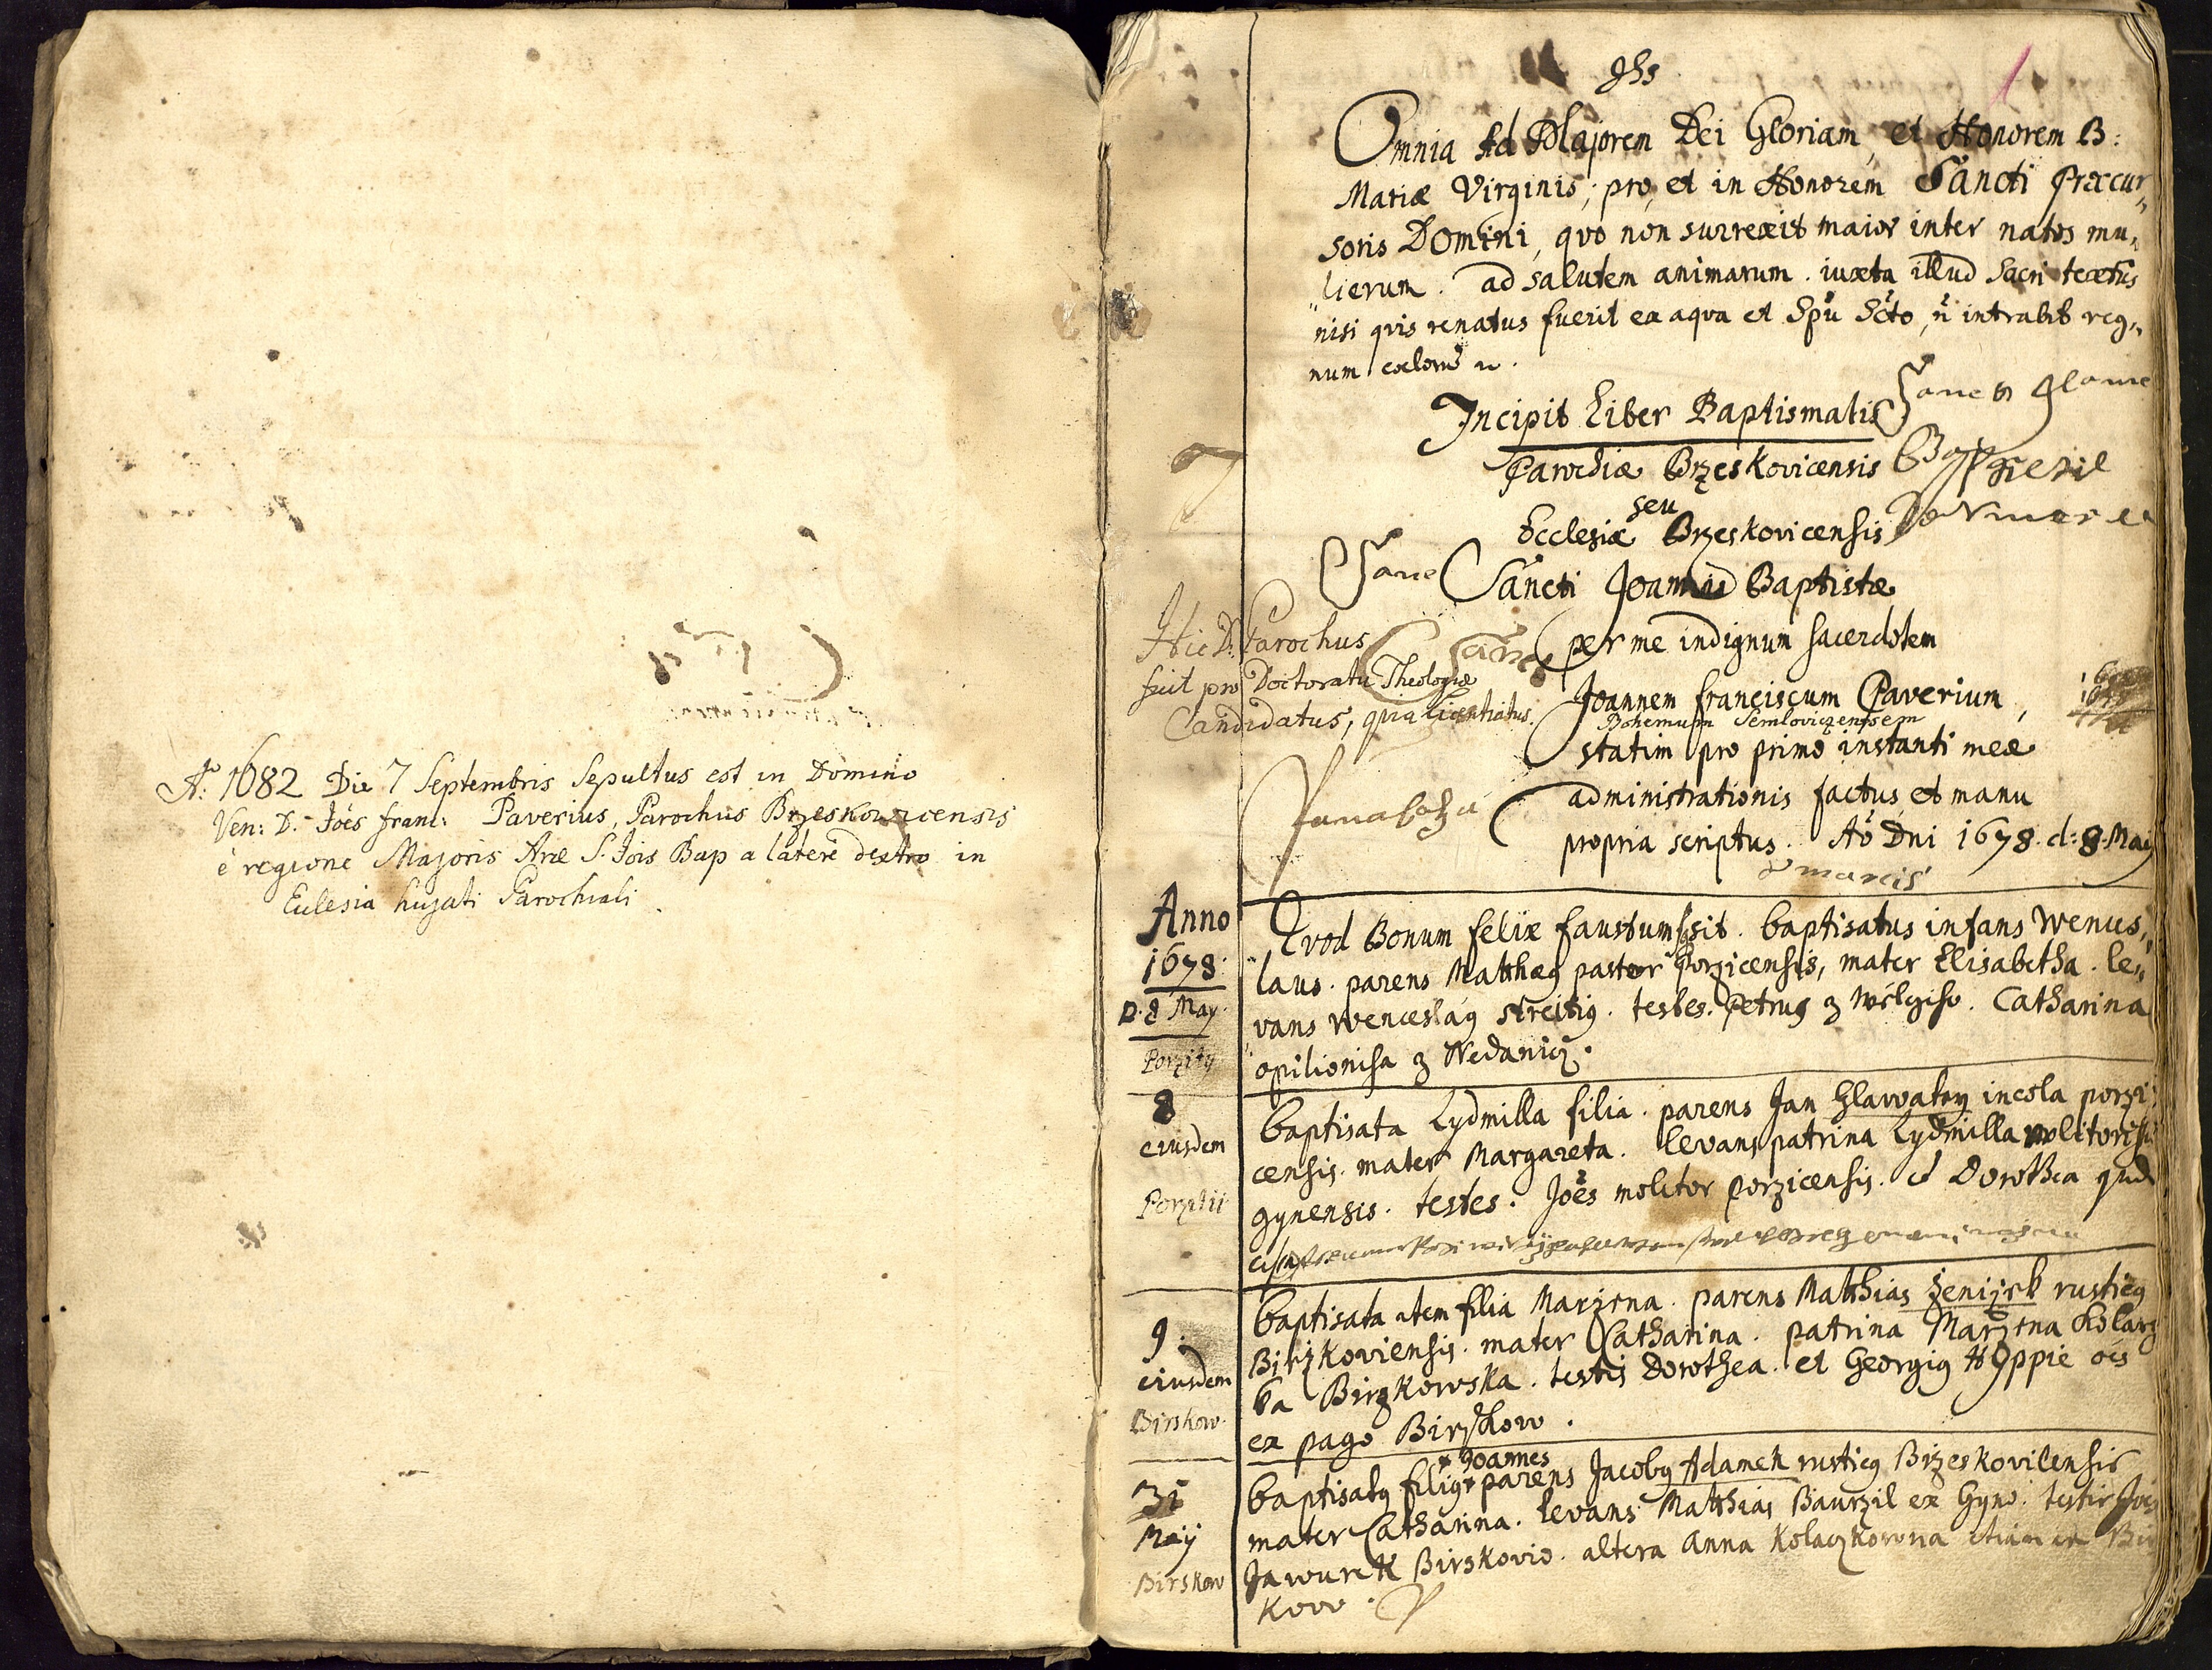 Ao: 1682 Die 7 Septembris Sepultus est in Domino
Ven: D. Joes Franc: Paverius, Parochus Brzeskowicensis
è regione Majoris Aræ S. Jois Bap a latere dextro in
Eclesia hujati Parochiali.
Jhs
1
Omnia Ad Majorem Dei Gloriam, et Honorem B:
Mariæ Virginis; pro, et in Honorem Sancti Præcur„
soris Domini, qvo non surrexit maior inter natos mu„
„lierum. ad salutem animarum. iuxta illud Sacri textus
nisi qvis renatus fuerit ex aqva et Spu Scto, n intrabit reg„
num cælorum
Incipit Liber Baptismatis
Parochiæ Brzeskovicensis
seu
Ecclesiæ Brzeskovicensis
Sancti Joannis Baptistæ
per me indignum sacerdotem
Joannem Franciscum Paverium,
Bohemum Semloviczensem
statim pro primo instanti meæ
administrationis factus et manu
propria scriptus. Ao Dni 1678. d: 8. May
Hic D. Parochus
fuit pro Doctoratu Theologiæ
Candidatus, qvia licentiatus.
Anno
1678.
D. 8 May.
Porzity
Qvod Bonum felix faustum sit. baptisatus infans Wences„
„laus. parens Matthæg pastor Porzicensis, mater Elisabetha. le„
vans Wenceslag Streitig. testes. Petrus z Catharina
opilionissa z Nedanicz.
8
eiusdem
Porzitii
baptisata Lydmilla filia. parens Jan Hlawatey incola porzi
censis. mater Margareta. levans patrina Lydmilla molitorissa
gynensis. testes. Joes molitor porzicensis. et Dorothea
9.
eiusdem
Birskow.
baptisata item filia Marzena. parens Matthias Zenijsek rusticg
Birzkoviensis. mater Catharina. patrina Marzena Kolarz
ka Birzkowska. testis Dorothea. et Georgig Hoppie oes
ex pago Birskow.
31
May
Birskow
baptisatg filig + parens Jacobg Adamek rusticg Brzeskovicensis
+ Joannes
mater Catharina. levans Matthias Baurzil ex Gyno. testis Joes
Jawurek Birskovio. altera Anna Kolaczkowna etiam ex Bir
kovo.